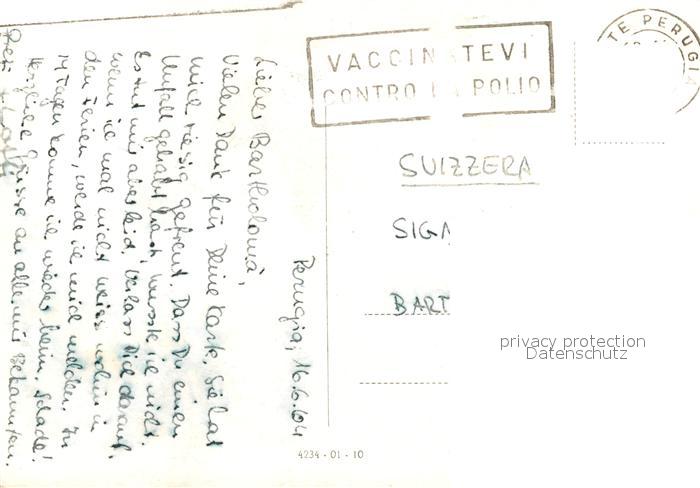 Perugia, 16.6.64
Lieber Bartholomä,
Vielen Dank für Deine Karte. Sie hat
mich riesig gefreut. Dass Du einen
Unfall gehabt hast wusste ich nicht.
Es tut mir aber leid. Verlass Dich darauf,
wenn ich mal nicht weiss wohin in
den Ferien, werde ich mich melden. In
14 Tagen komme ich wieder heim. Schade!
Herzliche Grüsse an alle mir Bekannten.
VACCIN TEVI
CONTRO L POLIO
TE PERUGI
SUIZZERA
SIG
BART
privacy protection
Datenschutz
4234 - 01 - 10